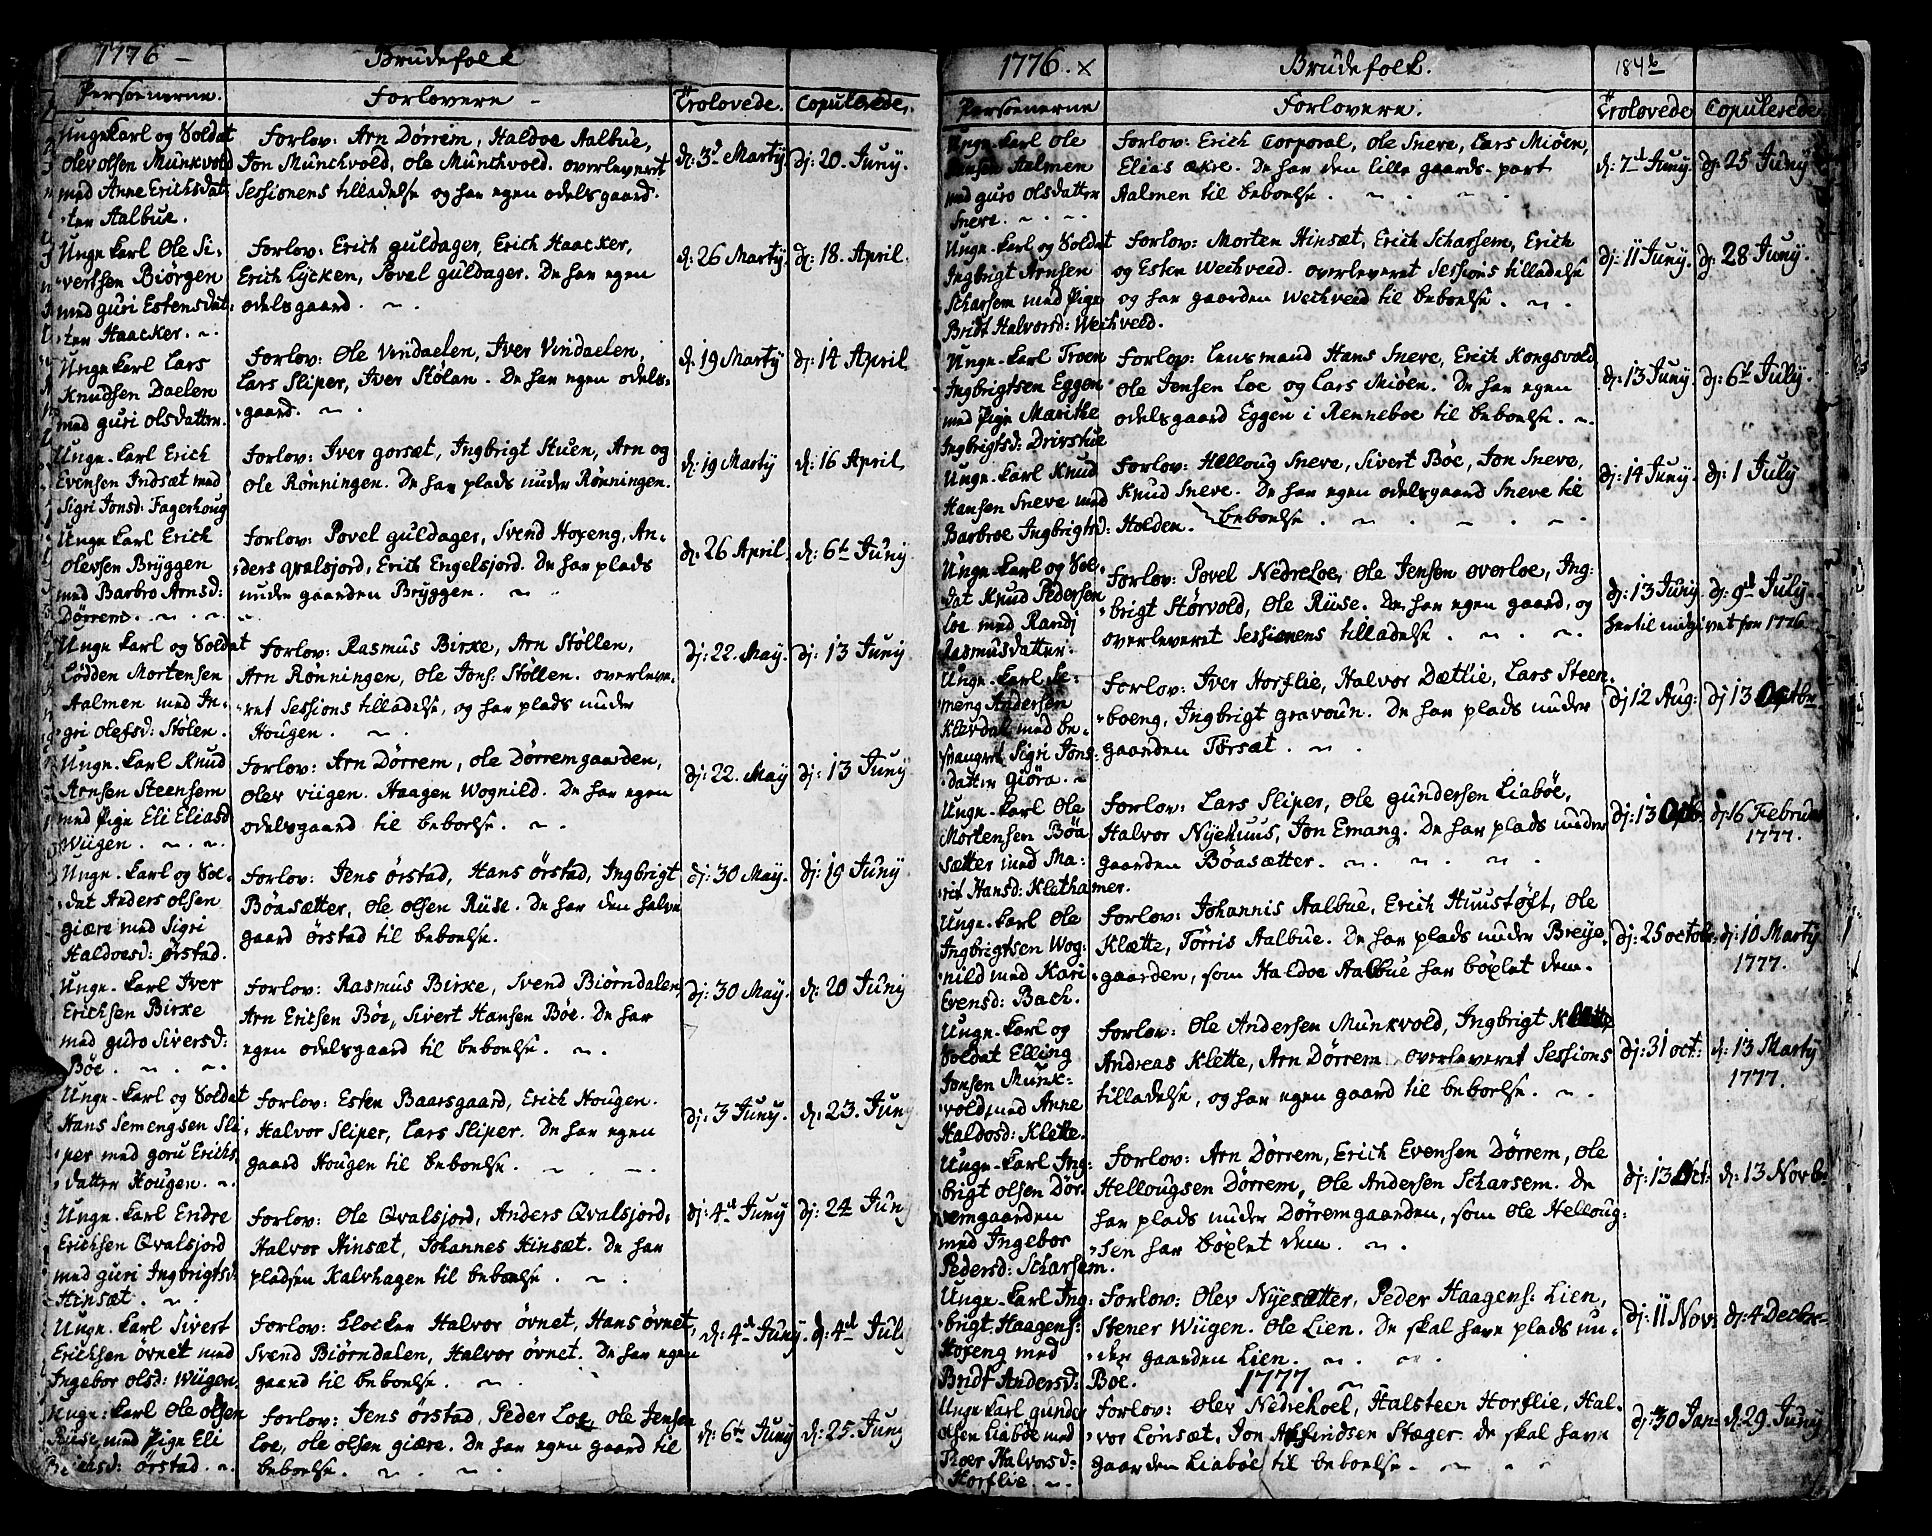 1776 –
Brudefolk
Personerne.
Forlovere –
Trolovede.
Copulerede.
Unge Karl og Soldat
Olev Olsen Munkvold
med Anne Erichsdat
ter Aalbue.
Forlov: Arn Dørrem, Haldoe Aalbue,
Jon Munchvold, Ole Munchvold. overleveret
Sessionens tilladelse og har egen odelsgaard.
d: 3d Marty
dj: 20. Juny.
Unge Karl Ole Si-
vertsen Biörgen
med guri Estensdat:
ter Haacker.
Forlov: Erich guldager, Erich Haacker,
Erich Lycken, Povel guldager. De har egen
odelsgaard.
d: 26 Marty.
dj: 18. April.
Unge Karl Lars
Knudsen Daelen
med guri olsdatter.
Forlov: Ole Vindaelen, Iver Vindaelen,
Lars Sliper, Iver Stølan. De har egen odels-
gaard.
d: 19 Marty
dj: 14 April
Unge-Karl Erich
Evensen Indsæt med
Sigri Jonsd: Fagerhoug
Forlov: Iver gorsæt, Ingbrigt Stuen, Arn og
Ole Rønningen. De har plads under Rønningen.
d: 19 Marty
d: 16 April
Unge Karl Erich
Olevsen Bryggen
med Barbro Arnsd:
Dörrem.
Forlov: Povel guldager, Svend Hoxeng, An-
ders qvalsjord, Erich Engelsjord. De har plads
under gaarden Bryggen.
d: 26 April.
d: 6t Juny
Unge Karl og Soldat
Lödden Mortensen
Aalmen med In-
gri Olefsd: Stølen.
Forlov: Rasmus Birxe, Arn Støllen,
Arn Rønningen, Ole Jons: Støllen. overleve-
ret Sessions tilladelse, og har plads under
Hougen.
dj: 22. May.
dj: 13 Juny
Unge-Karl Knud
Arnsen Steensem
med Pige Eli Eliasd
Wiigen.
Forlov: Arn Dörrem, Ole Dörremgaarden,
Olev Viigen. Haagen Wognild. De har egen
odelsgaard til beboelse.
dj: 22. May
dj: 13 Juny
Unge-Karl og Sol-
dat Anders Olsen
giære med Sigri
Haldoesd: Ørstad.
Forlov: Jens Ørstad, Hans Ørstad, Ingbrigt
Böasætter, Ole Olsen Ruse. De har den halve
gaard Ørstad til beboelse.
dj: 30 May.
dj: 19 Juny
Unge-Karl Iver
Erichsen Birxe
med guro Siversd:
Böe.
Forlov: Rasmus Birxe, Svend Biørndalen,
Arn Ericsen Böe, Sivert Hansen Böe. De har
egen odelsgaard til beboelse.
dj: 30 May.
d: 20 Juny
Unge-Karl og Soldat
Hans Semengsen Sli
per med goru Erichs
datter Hougen.
Forlov: Esten Baarsgaard, Erich Hougen.
Halvor Sliper, Lars Sliper. De har egen
gaard Hougen til beboelse.
dj: 3 Juny.
d: 23. Juny
Unge-Karl Endre
Erichsen Qvalsjord
med guri Ingbrigtsd:
Hinsæt.
Forlov: Ole Qvalsjord, Anders Qvalsjord,
Halvor Hinsæt, Johannes Hinsæt. De har
pladsen Kalvhagen til beboelse.
dj: 4d Juny
dj: 24 Juny
Unge-Karl Sivert
Erichsen Övnet med
Ingebor Olsd: Wiigen.
Forlov: Klocker Halvor Övnet, Hans Övnet,
Svend Biørndalen, Halvor Övnet. De har egen
gaard til beboelse.
d: 4d Juny.
d: 4d July
Unge-Karl Ole Olsen
Ruse med Pige Eli
Ørstad.
Forlov: Jens Ørstad, Peder Loe, Ole Jensen
Loe, Ole Olsen giære. De har egen gaard til
beboelse.
d: 6te Juny
d: 25. Juny
1776. x
Brudefolk.
184 b
Personerne
Forlovere.
Trolovede
Copulerede.
Unge-Karl Ole
Jensen Aalmen
med guro Olsdatter
Sneve.
Forlov: Erich Corporal, Ole Sneve, Lars Miøen,
Elias Ækre. De har den lille gaards-part
Aalmen til beboelse.
d: 7d Juny.
dj: 25 Juny
Unge-Karl og Soldat
Ingbrigt Arnsen
Scharsem med Pige
Bridt Halvorsd: Wechveed.
Forlov: Morten Hinsæt, Erich Scharsem, Erich
og Esten Wechveed. overleveret Sessions tilladelse
og har gaarden Wechveed til beboelse.
dj: 11 Juny.
dj: 28 Juny.
Unge-Karl Troen
Ingbrigtsen Eggen
med Pige Marithe
Ingbrigtsd: Drivstue
Forlov: Lensmand Hans Sneve, Erich Kongsvold
Ole Jensen Loe og Lars Miøen. De har egen
odelsgaard Eggen i Renneboe til beboelse.
dj: 13 Juny
dj: 6t July.
Unge-Karl Knud
Hansen Sneve med
Barbroe Ingbrigtsd: Holden.
Forlov: Helloug Sneve, Sivert Böe, Jon Sneve,
Knud Sneve. De har egen odelsgaard Sneve til
beboelse.
dj: 14 Juny.
dj: 1 July
Unge-Karl og Sol-
dat Knud Pedersen
Loe med Randi
Rasmusdatter.
Forlov: Povel Nedreloe, Ole Jensen overloe, Ing:
brigt Størvold, Ole Ruse. De har egen gaard, og
overleveret Sessionens tilladelse.
dj: 13 Juny
dj: 9d July
hertil indgivet for 1776
Unge-Karl Se-
meng Andersen
Klevdal med be-
svangert Sigri Jons-
datter giöra.
Forlov: Iver Horflie, Halvor Dætlie, Lars Steen-
boeng, Ingbrigt gravoun. De har plads under
gaarden Törsæt.
dj 12 Aug:
dj 13 Octbr
Unge-Karl Ole
Mortensen Böa
sætter med Ma-
rit Hansd: Klethamer.
Forlov: Lars Sliper, Ole gundersen Liaböe,
Halvor Nyehuus, Jon Emang. De har plads under
gaarden Böasætter.
dj: 13
dj 16 Februar
1777.
Unge-Karl Ole
Ingbrigtsen Wog-
nild med Kari
Evensd: Bach.
Forlov: Johannis Aalbue, Erich Huustøft, Ole
Klætte, Törris Aalbue. De har plads under Breye-
gaarden, som Haldoe Aalbue har böxlet dem.
dj: 25 octobr:
dj: 10 Marty
1777.
Unge-Karl og
Soldat Elling
Jonsen Munk-
vold med Anne
Haldosd: Klette.
Forlov: Ole Andersen Munkvold, Ingbrigt Klette
Andreas Klette, Arn Dörrem. overleveret Sessions
tilladelse, og har egen gaard til beboelse.
dj: 31 oct:
d: 13 Marty
1777.
Unge-Karl Ing-
brigt Olsen Dör-
remgaarden
med Ingebor
Pedersd: Scharsem.
Forlov: Arn Dörrem, Erich Evensen Dörrem, Ole
Hellougsen Dörrem, Ole Andersen Scharsem. De
har plads under Dörremgaarden, som Ole Helloug-
sen har böxlet dem.
dj: 13 Oct:
d: 13 Novb:
Unge-Karl Ing-
brigt Haagens:
Hoxeng med
Bridt Andersd: Böe.
Forlov: Olev Nyesætter, Peder Haagens: Lien,
Stener Wiigen. Ole Lien. De skal have plads un-
der gaarden Lien.
dj: 11 Nov:
dj: 4 Decbr
1777.
Unge Karl gunder
Olsen Liaböe med
Troer Halvorsd:
Horflie.
Forlov: Olev Nedrehoel, Halsteen Horflie, Hal-
vor Lonsæt, Jon Affindsen Stæger. De skal have
gaarden Liaböe til beboelse.
dj: 30 Jan:
d: 29. Juny